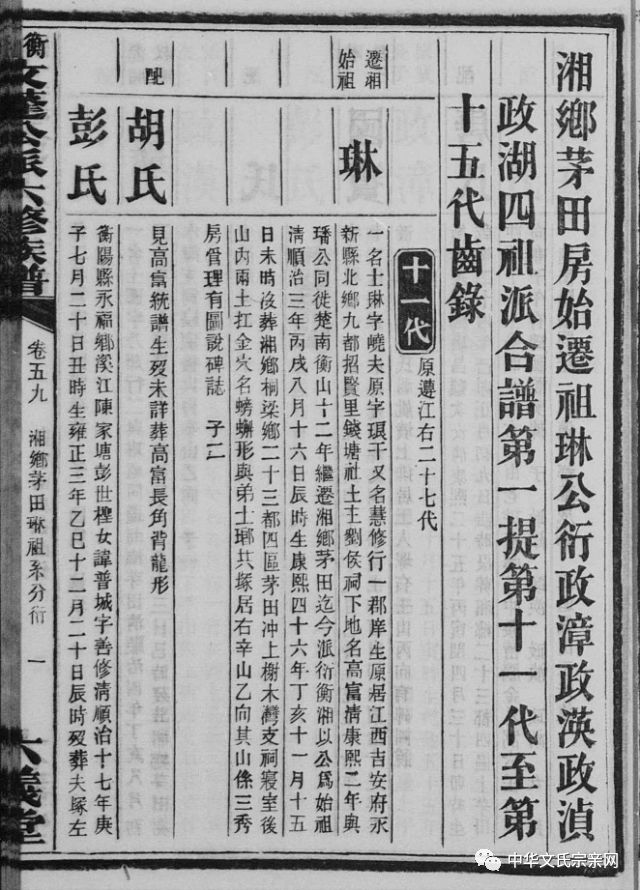 湘鄉茅田房始遷祖琳公衍政漳政渶政湞
政湖四祖派合譜第一提第十一代至第
十五代齒錄
十一代
原遷江右二十七代
遷湘
始祖
琳
一名士琳字嶢夫原字環千又名慧修行一郡庠生原居江西吉安府永
新縣北鄉九都招賢里錢塘社土主劉侯祠下地名高富清康熙二年與
璠公同徙楚南衡山十二年繼遷湘鄉茅田迄今派衍衡湘以公為始祖
清順治三年丙戌八月十六日辰時生康熙四十六年丁亥十一月十五
日未時沒葬湘鄉桐梁鄉二十三都四區茅田冲上榭木灣支祠寢室後
山內兩土扛金穴名螃蠏形與弟士瑯共塚居右辛山乙向其山係三秀
房管理有圖說碑誌 子二
配
胡氏
見高富統譜生歿未詳葬高富長角背龍形
彭氏
衡陽縣永福鄉溪江陳家塘彭世樫女諱普城字善修清順治十七年庚
子七月二十日丑時生雍正三年乙巳十二月二十日辰時歿葬夫塚左
衡文達公派六修族譜
卷五九
湘鄉茅田琳祖系分衍
一
六義堂
中华文氏宗亲网